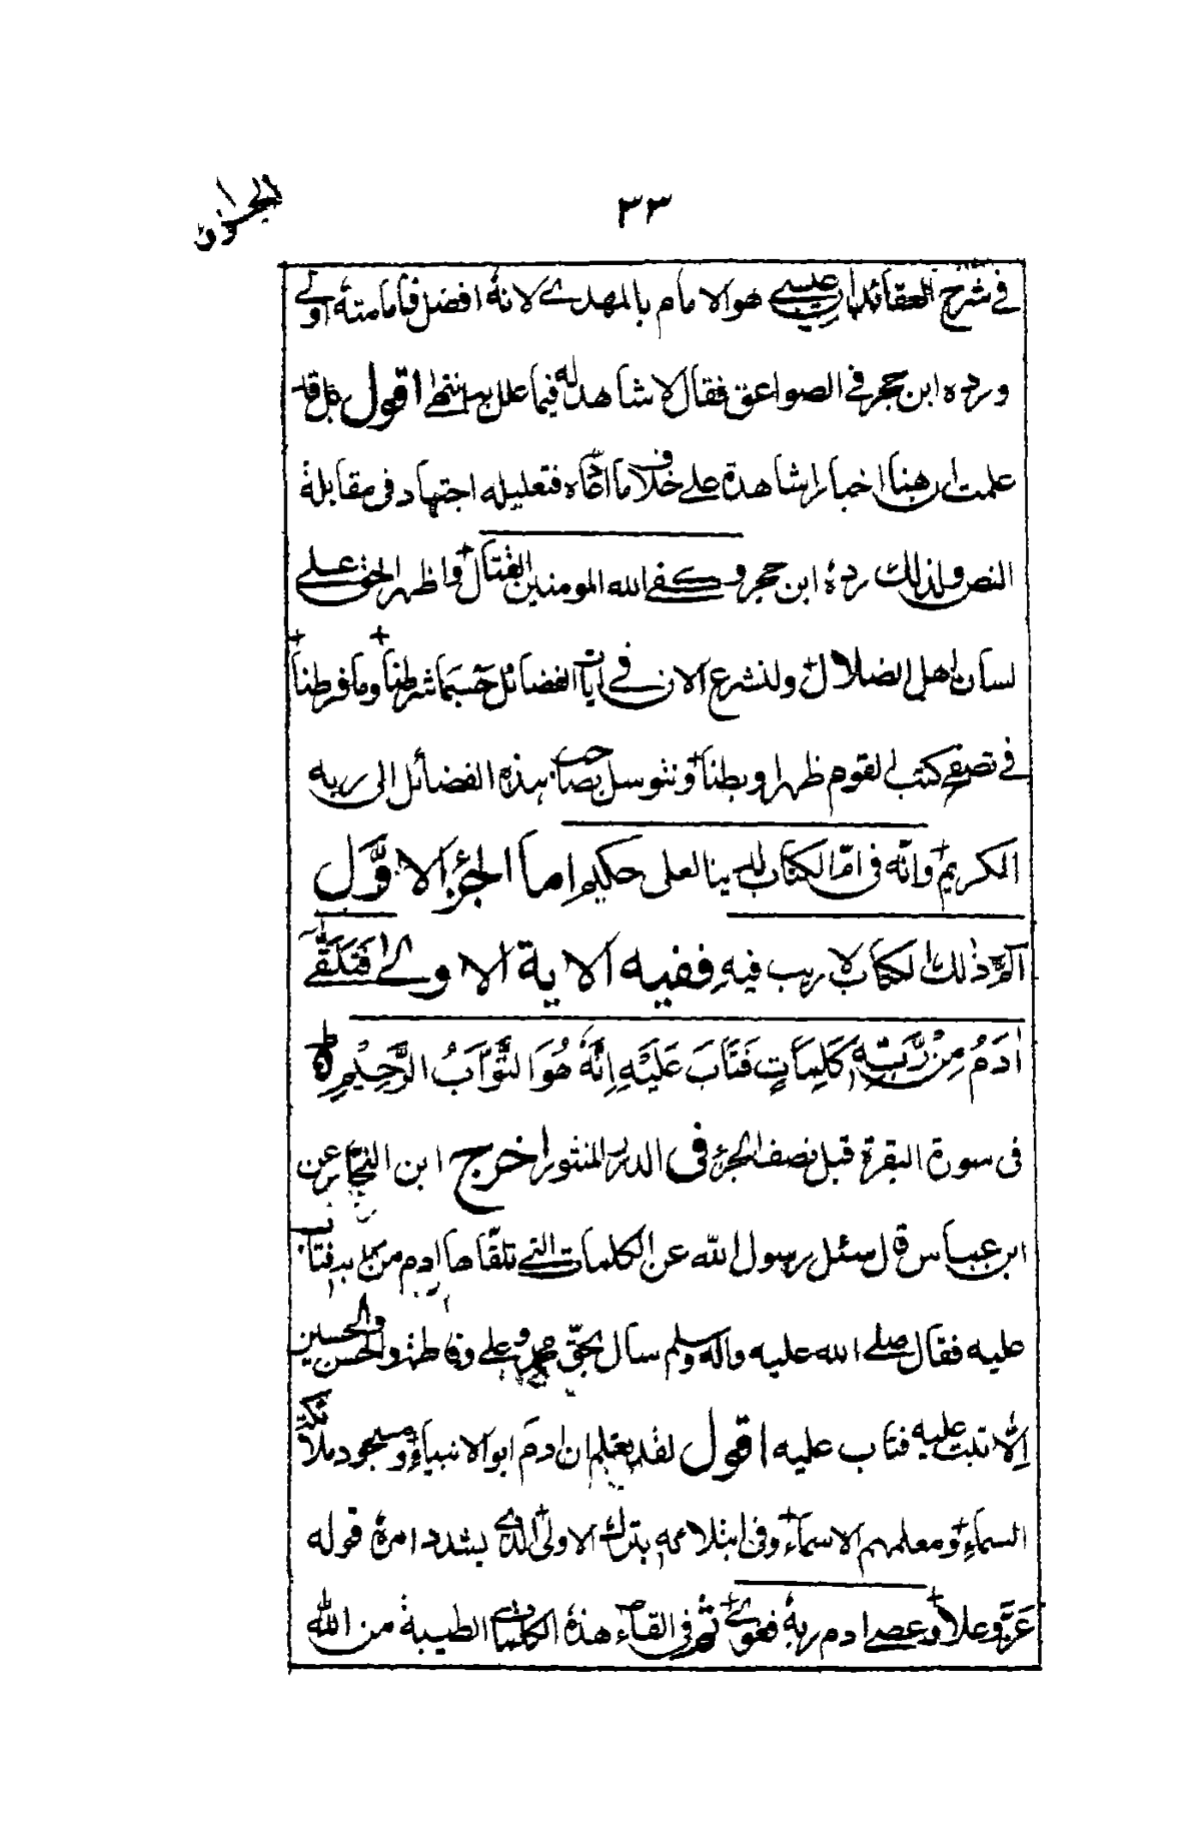 ٣٣
الجزء ١
في شرح العقائد ان عيسى هو الامام بالمهدي لانه افضل فامامته اولى
ورده ابن حجر في الصواعق فقال لا شاهد له فيما علل به انتهى اقول بل قد
علمت ان هنا اخبارا شاهدة على خلاف ما ادعاه فتعليله اجتهاد في مقابلة
النص ولذلك رده ابن حجر وكفى الله المومنين القتال واظهر الحق على
لسان اهل الضلال ولنشرع الان في آيات الفضائل حسبما شرطنا وما فرطنا
في تصفح كتب القوم ظهرا وبطنا ونتوسل بصاحب هذه الفضائل الى ربه
الكريم وانّه في امّ الكتاب لدينا لعلي حكيم اما الجزء الاوّل
آلم ذلك الكتاب لا ريب فيه ففيه الاية الاولى فَتَلَقّٰى
اٰدَمُ مِنْ رَّبِّهٖ كَلِمَاتٍ فَتَابَ عَلَيْهِ اِنَّهٗ هُوَ التَّوَّابُ الرَّحِيْمِ ط
في سورة البقرة قبل نصف الجزء في الدر المنثور اخرج ابن النجّار عن
ابن عباس قال سئل رسول الله عن الكلمات التي تلقّاها ادم من ربه فتاب
عليه فقال صلى الله عليه واله وسلم سال بحق محمد وعلي وفاطمة والحسن والحسين
اِلّا تبت عليه فتاب عليه اقول لقد يعلم ان ادمَ ابو الانبياء ومسجود ملائكة
السماء ومعلمهم الاسماء وفي ابتلاءه بترك الاولى الذي يشدد امره قوله
عَزّ وعلا وعصى ادم ربه فغوى ثم في القاء هذه الكلمات الطيبة من الله